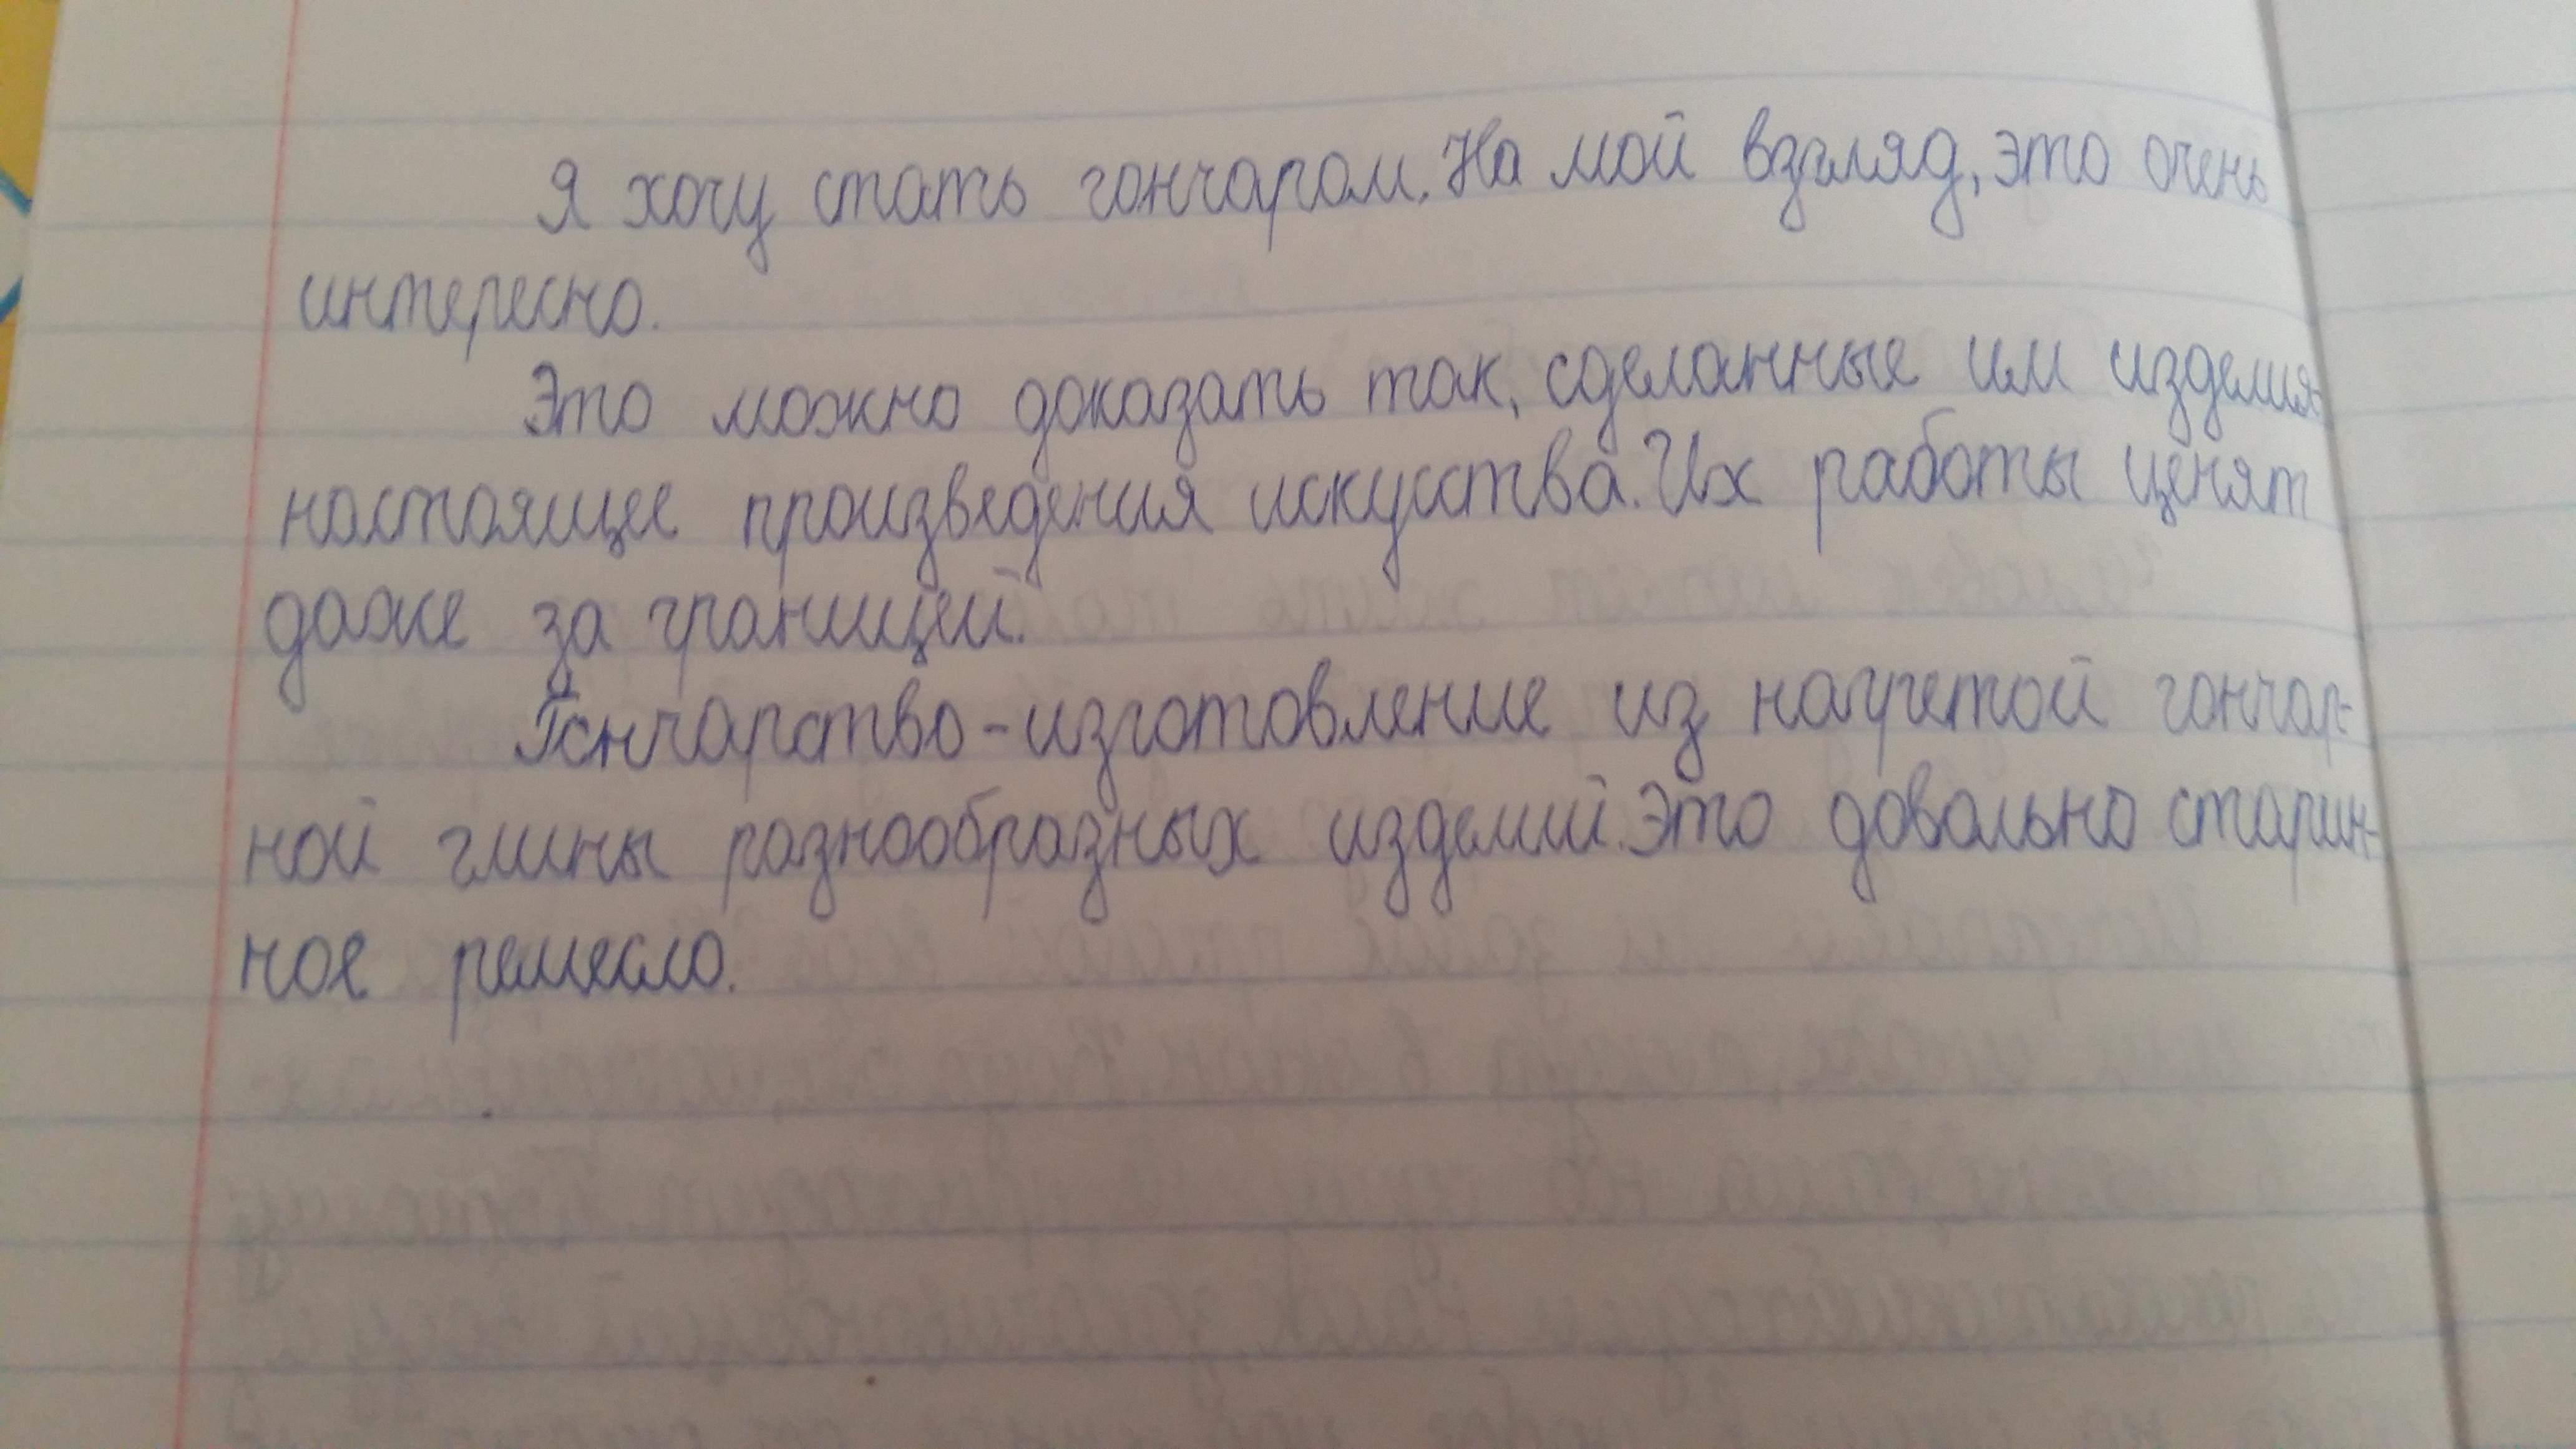 Я хочу стать гончаром. На мой взгляд, это очень
интересно.
Это можно доказать так, сделанные им изделия-
настоящее произведения искусства. Их работы ценят
даже за границей.
Гончарство - изготовление из
гончар-
ной глины разнообразных изделий. Это довольно старин-
ное ремесло.